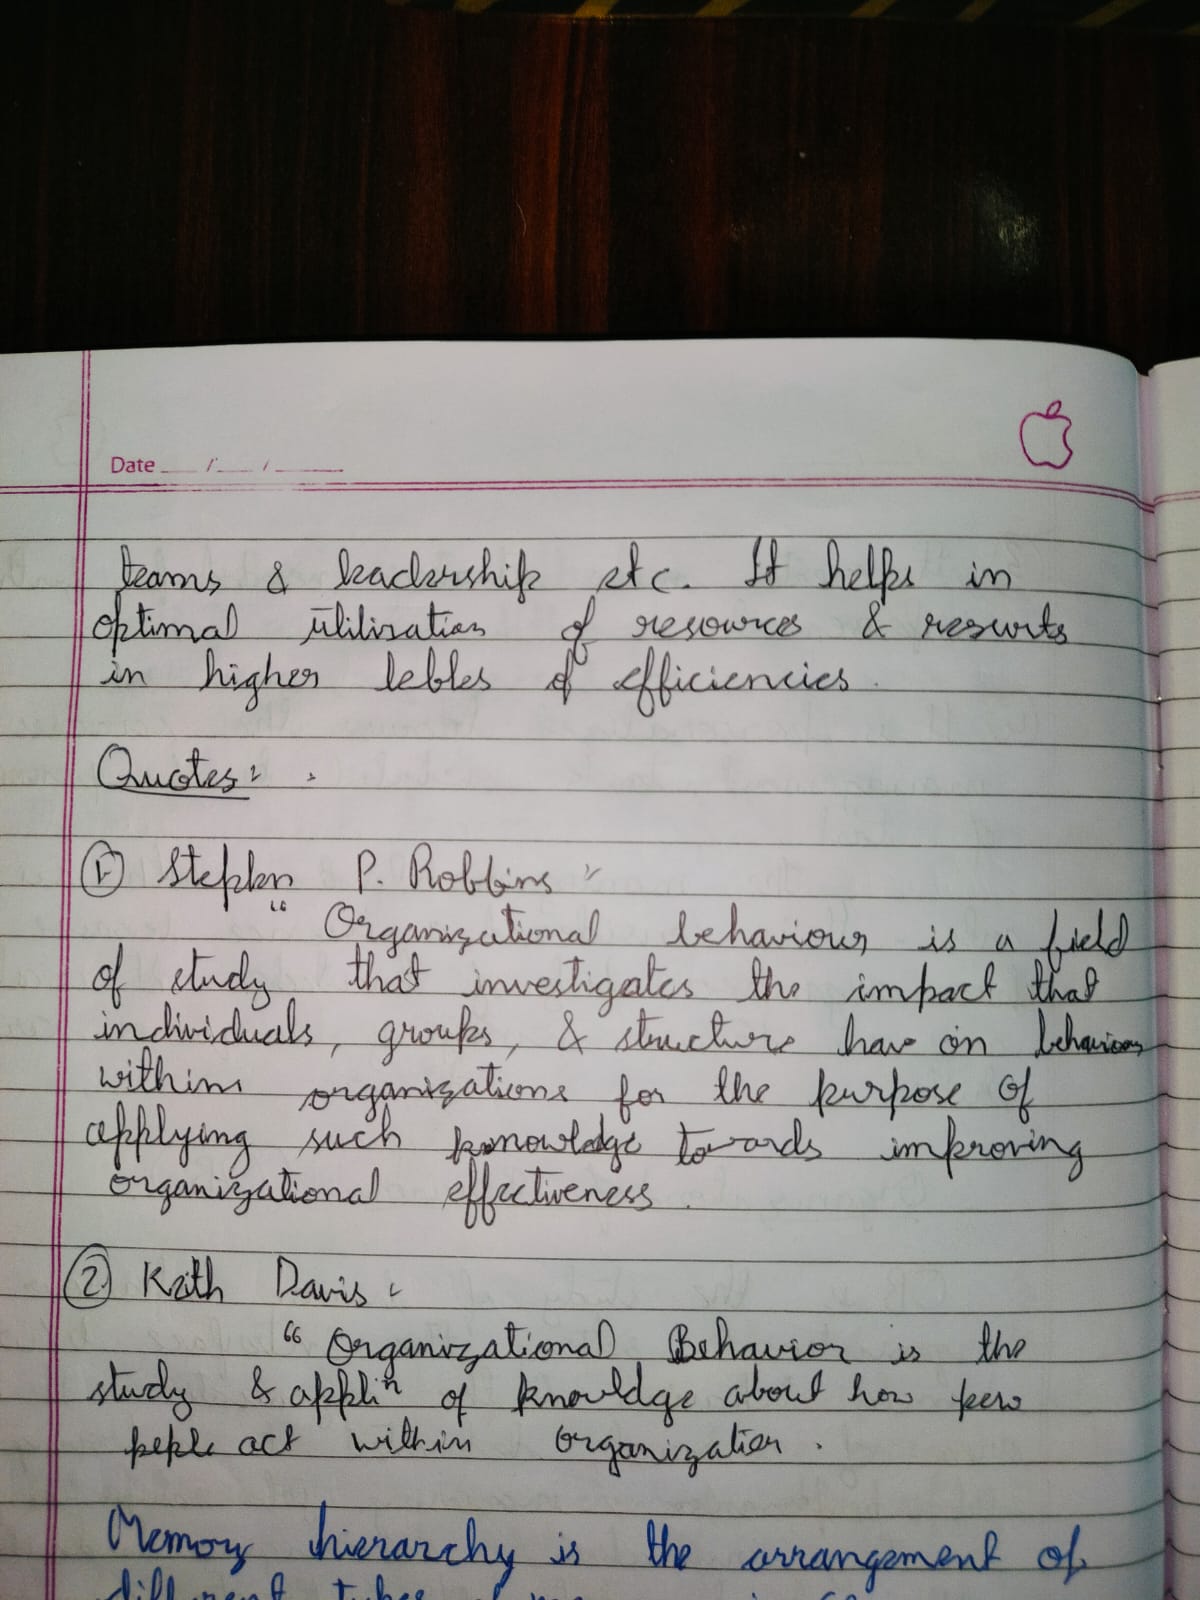 Date
teams & leadership etc. It helps in
optimal utilization of resources & resurts
in higher lebles of efficiencies.
Quotes:
① Stephen P. Robbins
“ Organizational behaviour is a field
of study that investigates the impact that
individuals, groups, & structure have on behaviour
within organizations for the purpose of
applying such knowledge towards improving
organizational effectiveness.
② Keith Davis:
“ Organizational Behavior is the
study & appliⁿ of knowldge about how
peple act within organization.
Memory hierarchy is the arrangement of
different types of